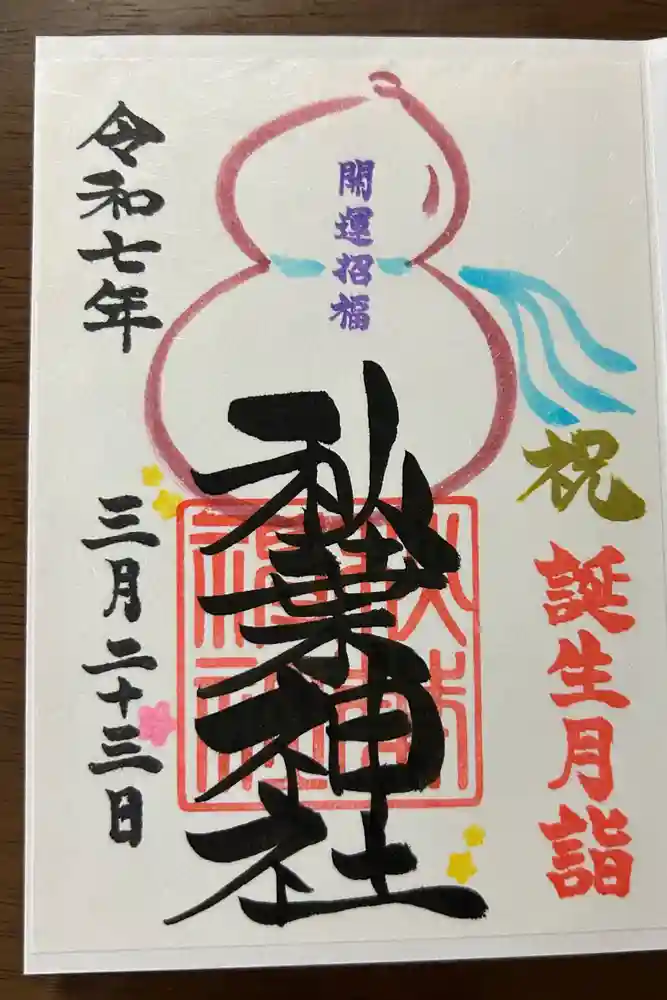 祝
誕生月詣
開運招福
秋葉神社
令和七年
三月二十三日